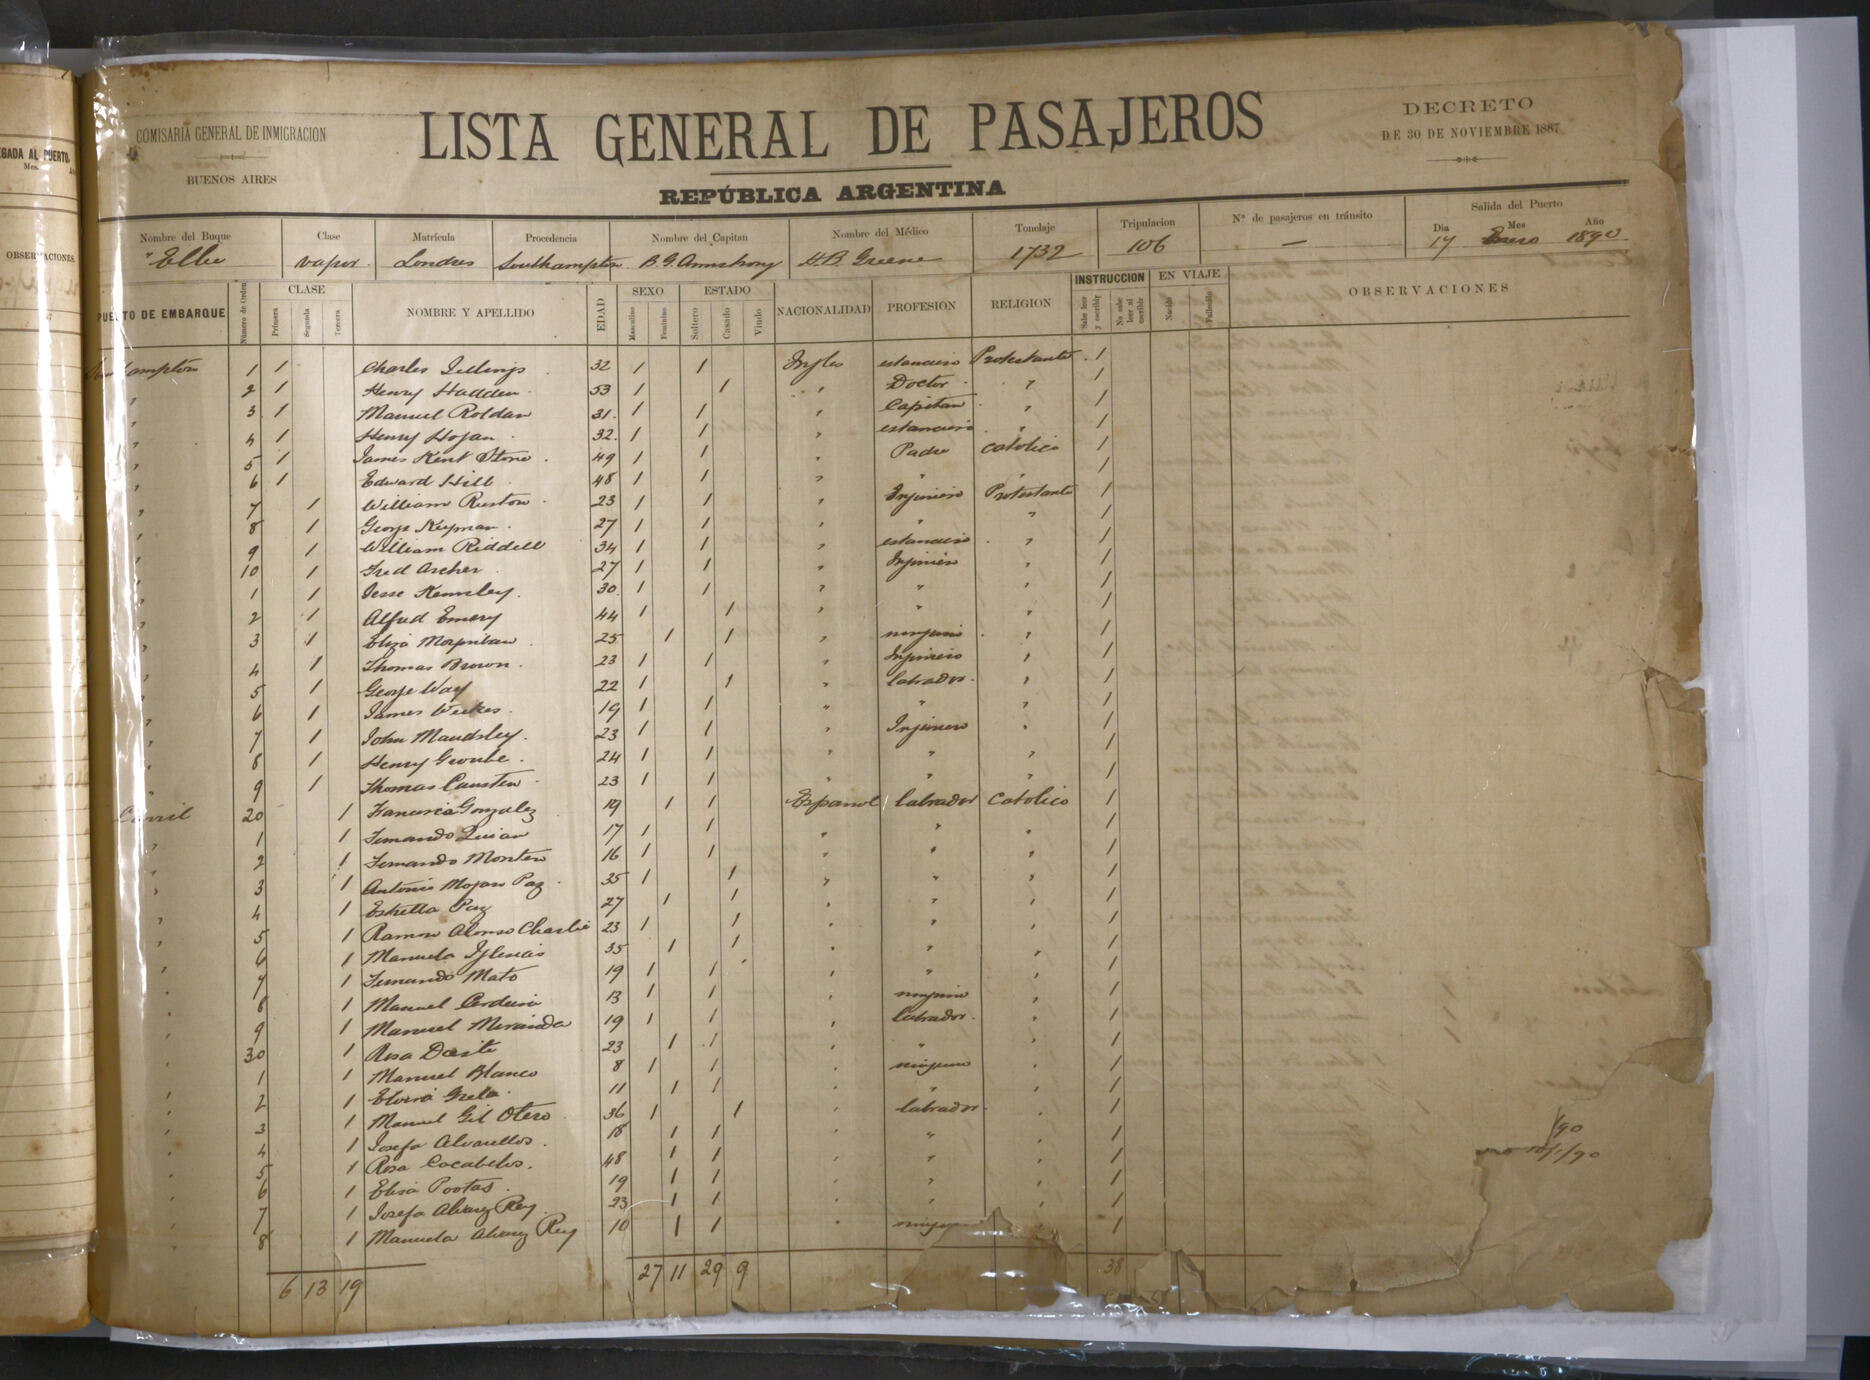 COMISARÍA GENERAL DE INMIGRACION
BUENOS AIRES
LISTA GENERAL DE PASAJEROS
REPÚBLICA ARGENTINA
DECRETO
DE 30 DE NOVIEMBRE 1887
Nombre del Buque Clase Matrícula Procedencia Nombre del Capitan Nombre del Médico Tonelaje Tripulacion Nº de pasajeros en tránsito Salida del Puerto
Dia Mes Año
"Elbe vapor Londres Southampton B. G. Armstrong H.B. Greene 1732 106 — 17 Enero 1890
PUERTO DE EMBARQUE Número de Orden CLASE Primera Segunda Tercera NOMBRE Y APELLIDO EDAD SEXO Masculino Femenino ESTADO Soltero Casado Viudo NACIONALIDAD PROFESION RELIGION INSTRUCCION Sabe leer y escribir No sabe leer ni escribir EN VIAJE Nacido Fallecido OBSERVACIONES
Southampton 1 1 Charles 32 1 1 Ingles estanciero Protestante 1
" 2 1 Henry Hadden 53 1 1 " Doctor " 1
" 3 1 Manuel Roldan 31 1 1 " Capitan " 1
" 4 1 Henry Hogan 32 1 1 " estanciero " 1
" 5 1 James Kent Stone 49 1 1 " Padre Catolico 1
" 6 1 Edward Hill 48 1 1 " " " 1
" 7 1 William Ruston 23 1 1 " Injeniero Protestante 1
" 8 1 George 27 1 1 " " " 1
" 9 1 William Riddell 34 1 1 " estanciero " 1
" 10 1 Fred Archer 27 1 1 " Injeniero " 1
" 1 1 Jesse 30 1 1 " " " 1
" 2 1 Alfred Emery 44 1 1 " " " 1
" 3 1 Eliza 25 1 1 " ninguno " 1
" 4 1 Thomas Brown 23 1 1 " Injeniero " 1
" 5 1 George Way 22 1 1 " labrador " 1
" 6 1 James Weekes 19 1 1 " " " 1
" 7 1 John Maudsley 23 1 1 " Injeniero " 1
" 8 1 Henry 24 1 1 " " " 1
" 9 1 Thomas 23 1 1 " " " 1
Carril 20 1 Francisca Gonzalez 19 1 1 Español labrador Catolico 1
" 1 1 Fernando 17 1 1 " " " 1
" 2 1 Fernando Montero 16 1 1 " " " 1
" 3 1 Antonio Paz 35 1 1 " " " 1
" 4 1 Estrella Paz 27 1 1 " " " 1
" 5 1 Ramon Alonso 23 1 1 " " " 1
" 6 1 Manuela Iglesias 35 1 1 " " " 1
" 7 1 Fernando Mato 19 1 1 " " " 1
" 8 1 Manuel 13 1 1 " ninguno " 1
" 9 1 Manuel Miranda 19 1 1 " labrador " 1
" 30 1 Rosa 23 1 1 " " " 1
" 1 1 Manuel Blanco 8 1 1 " ninguno " 1
" 2 1 Elvira Grela 11 1 1 " " " 1
" 3 1 Manuel Gil Otero 36 1 1 " labrador " 1
" 4 1 Josefa Alvarellos 18 1 1 " " " 1
" 5 1 Rosa Cacabelos 48 1 1 " " " 1
" 6 1 Elisa 19 1 1 " " " 1
" 7 1 Josefa Alvarez Rey 23 1 1 " " " 1
" 8 1 Manuela Alvarez Rey 10 1 1 " ninguno " 1
6 13 19 27 11 29 9 38
EGADA AL PUERTO
Mes
OBSERVACIONES